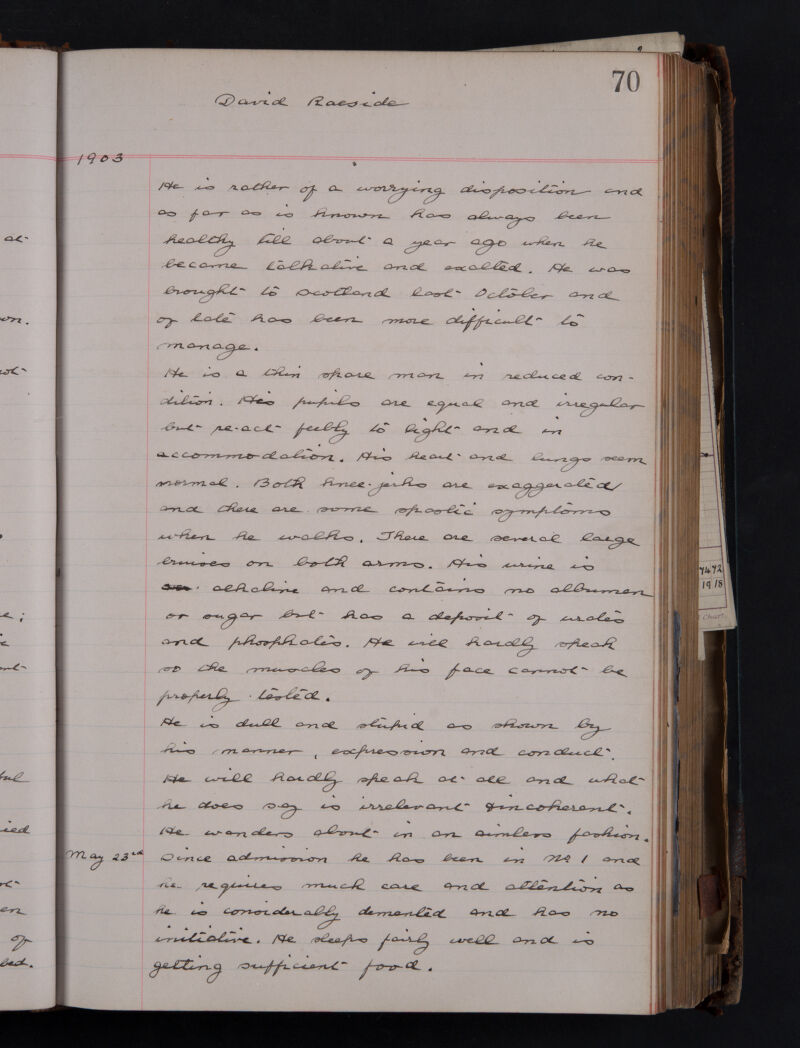 70
David Raeside
1903
He is rather of a worrying disposition and
as far as is known has always been
healthy till about a year ago when he
became talkative and exalted. He was
brought to Scotland last October and
of late has been more difficult to
manage.
He is a thin spare man in reduced con-
dition. His pupils are equal and irregular
but re-act feebly to light and in
accommodation. His heart and lungs seem
normal. Both knee-jerks are exaggerated
and there are some spastic symptoms
when he walks. There are several large
bruises on both arms. His urine is
alkaline and contains no albumen
or sugar but has a deposit of urates
and phosphates. He will hardly speak
so the muscles of his face cannot be
properly tested.
He is dull and stupid as shown by
his manner, expression and conduct.
He will hardly speak at all and what
he does say is irrelevant & incoherent.
He wanders about in an aimless fashion.
May 23rd Since admission he has been in No 1 and
he requires much care and attention as
he is considerably demented and has no
initiative. He sleeps fairly well and is
getting sufficient food.
7472
1918
Chart